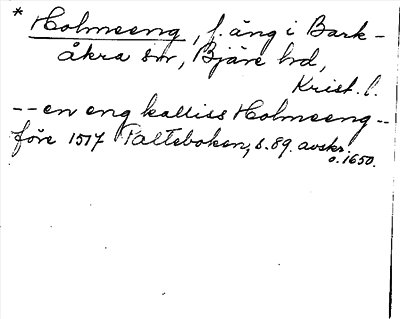 * Holmeeng, f. äng i Bark-
åkra sn, Bjäre hd,
Krist. l.
-- en eng kalliss Holmeeng --
före 1517 Palteboken, s. 89. avskr.
o. 1650.